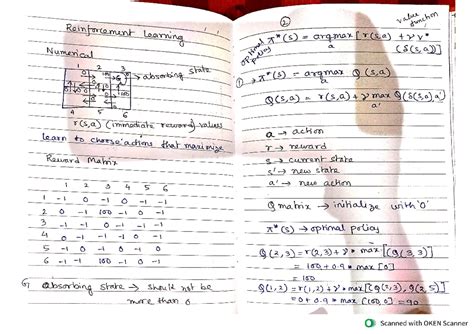 Reinforcement Learning
Numerical
1 2 3
G → absorbing state
4 5 6
r(s,a) (immediate reward) values
learn to choose actions that maximize
Reward Matrix
1 2 3 4 5 6
1 -1 0 -1 0 -1 -1
2 0 -1 100 -1 0 -1
3 -1 -1 0 -1 -1 -1
4 0 -1 -1 -1 0 -1
5 -1 0 -1 0 -1 0
6 -1 -1 100 -1 0 -1
G absorbing state → should not be
more than 0
②
value
function
optimal
policy
π*(s) = argmax [r(s,a) + γ v*
a (δ(s,a))]
① → π*(s) = argmax Q(s,a)
a
Q(s,a) = r(s,a) + γ max Q(δ(s,a) a')
a'
a → action
r → reward
s → current state
s' → new state
a' → new action
Q matrix → initialize with '0'
π*(s) → optimal policy
Q(2,3) = r(2,3) + γ * max [(Q(3,3)]
= 100 + 0.9 * max [0]
= 100
Q(1,2) = r(1,2) + γ * max [Q(2,3), Q(2,5)]
= 0 + 0.9 * max [100,0] = 90
Scanned with OKEN Scanner